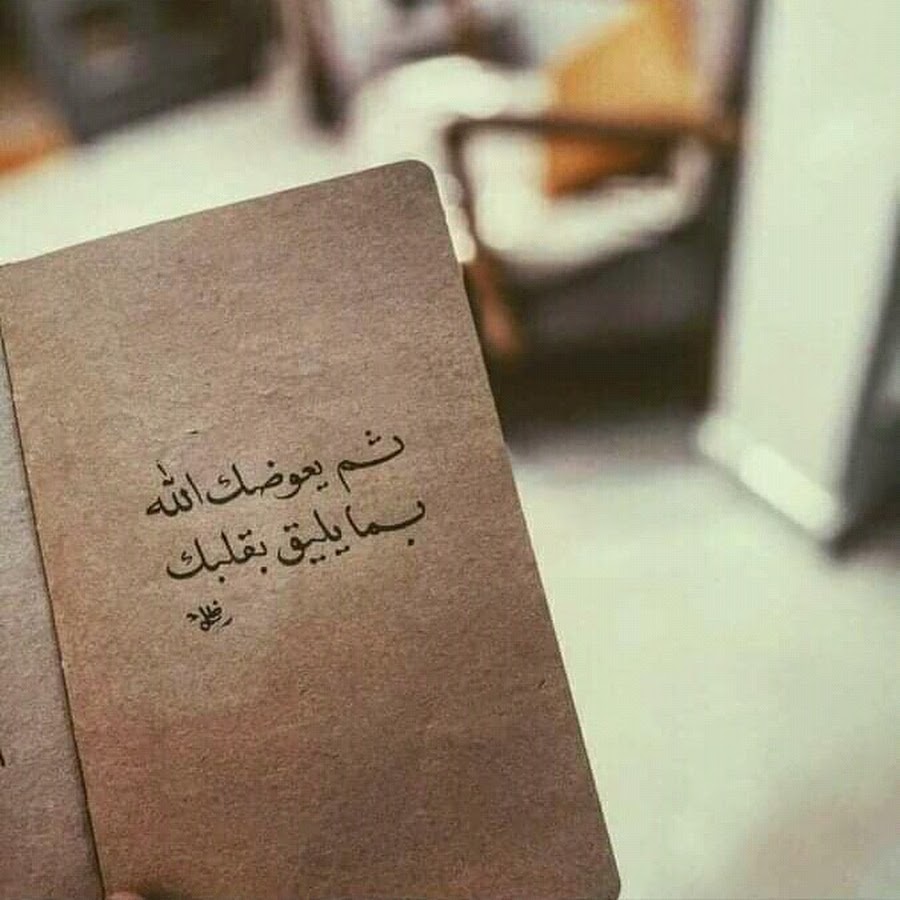 ثم يعوضك الله
بما يليق بقلبك